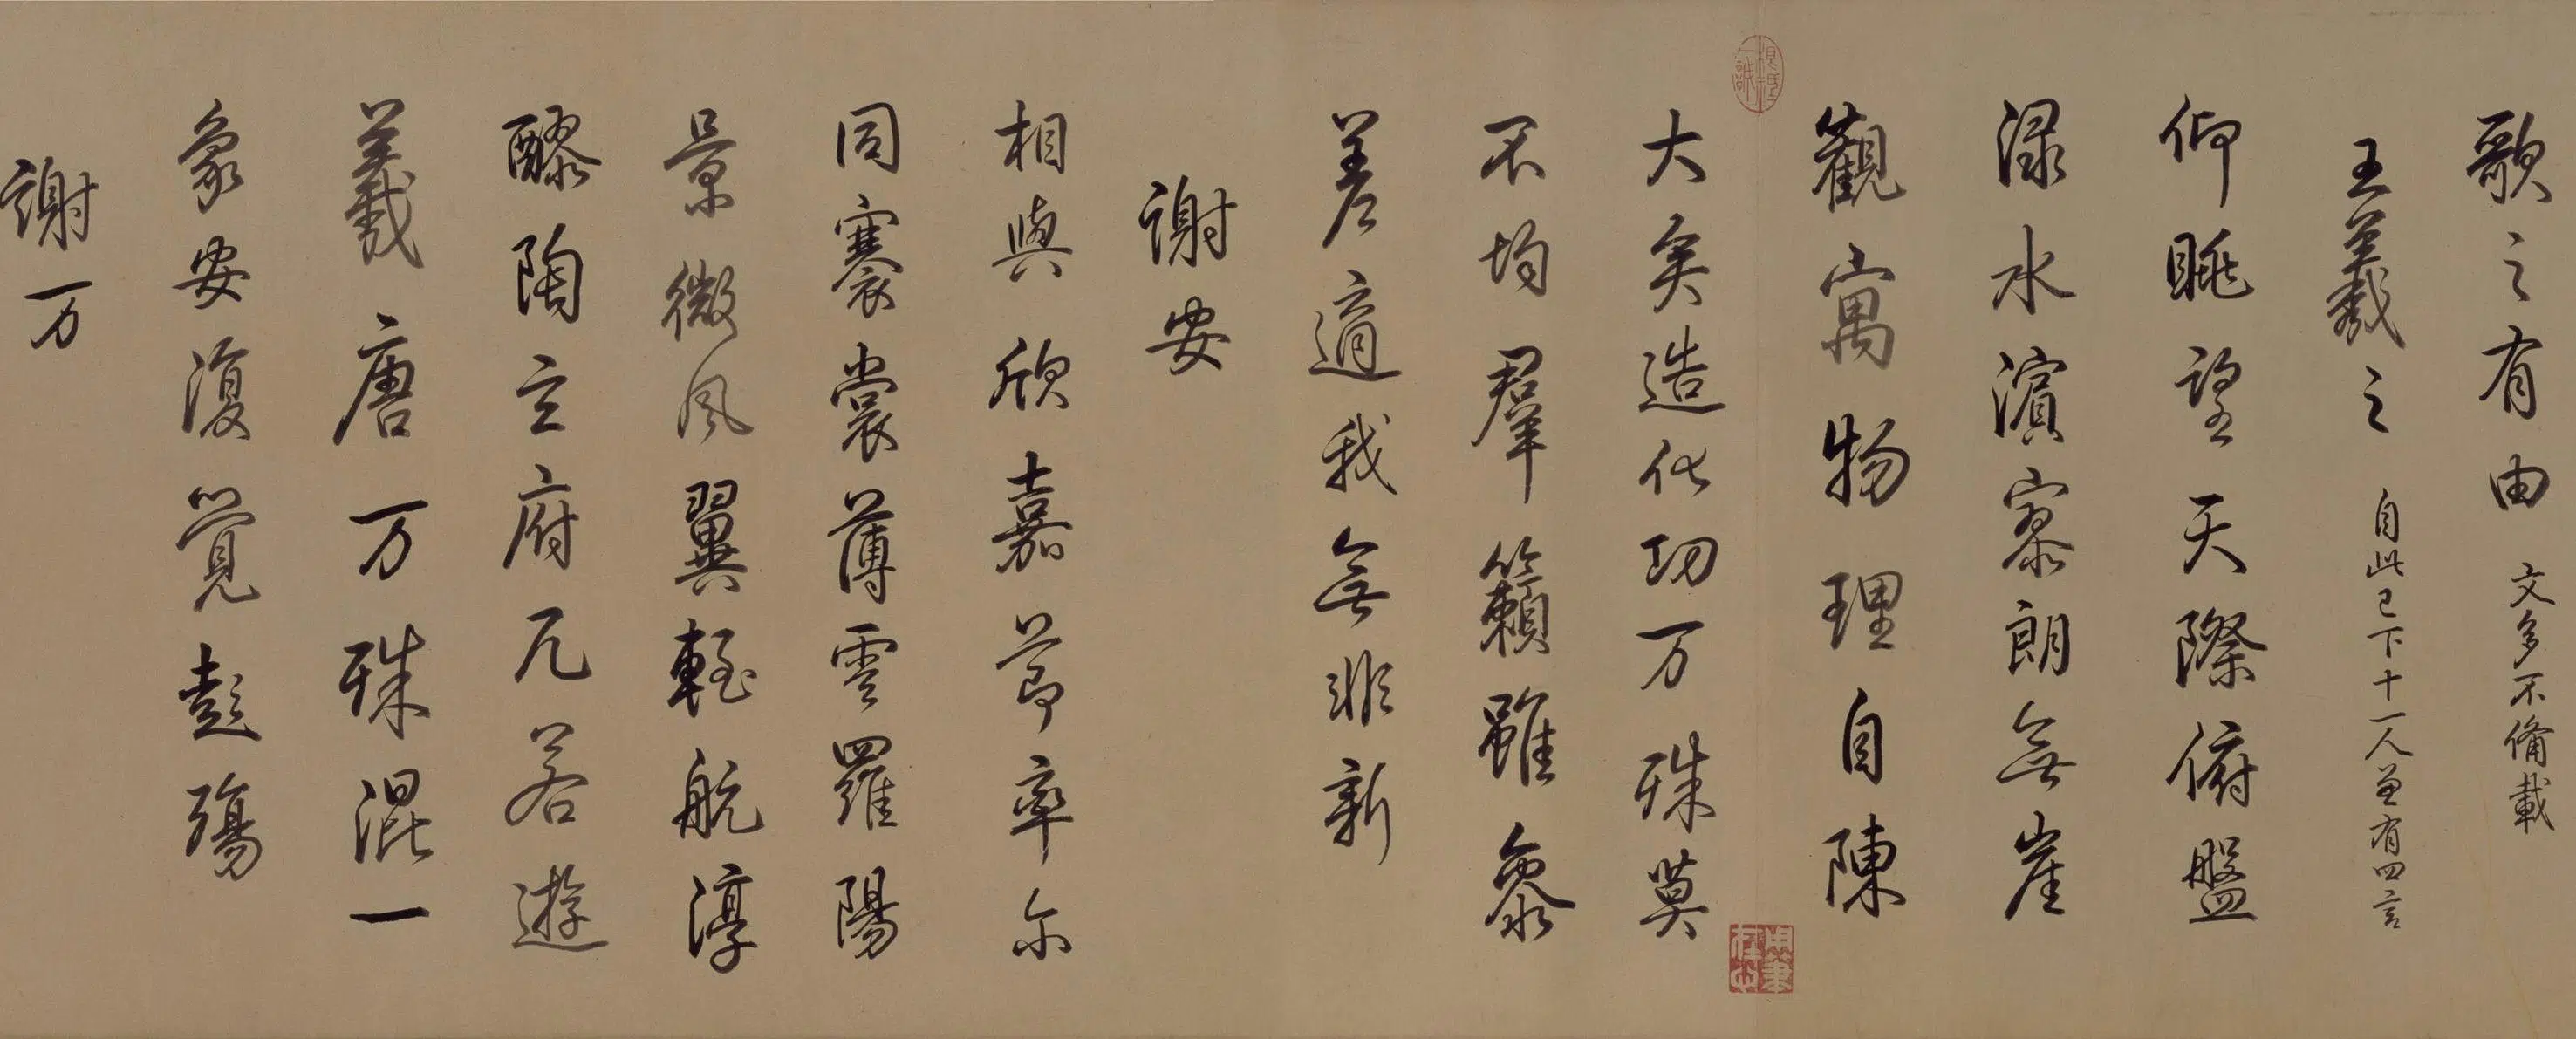 歌之有由 文多不備載
王羲之 自此已下十一人並有四言
仰眺望天際俯盤
渌水濱寥朗無崖
觀寓物理自陳
大矣造化功万殊莫
不均群籟雖參
差適我無非新
謝安
相與欣嘉節率尔
同褰裳薄雲羅陽
景微風翼輕航淳
醪陶玄府兀若遊
羲唐万殊混一
象安復覺彭殤
謝万
用筆
在心